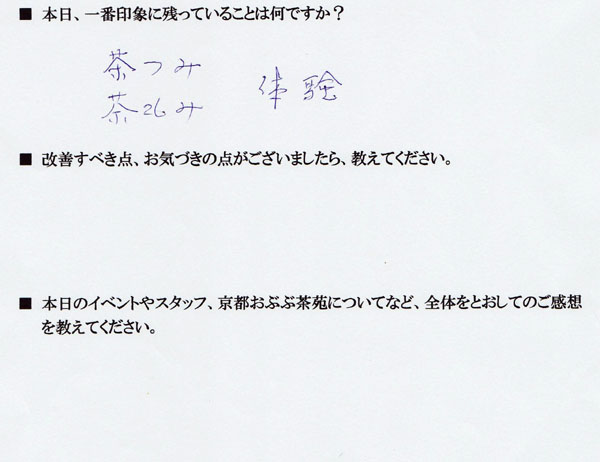 ■ 本日、一番印象に残っていることは何ですか？
茶つみ
茶もみ 体験
■ 改善すべき点、お気づきの点がございましたら、教えてください。
■ 本日のイベントやスタッフ、京都おぶぶ茶苑についてなど、全体をとおしてのご感想
を教えてください。